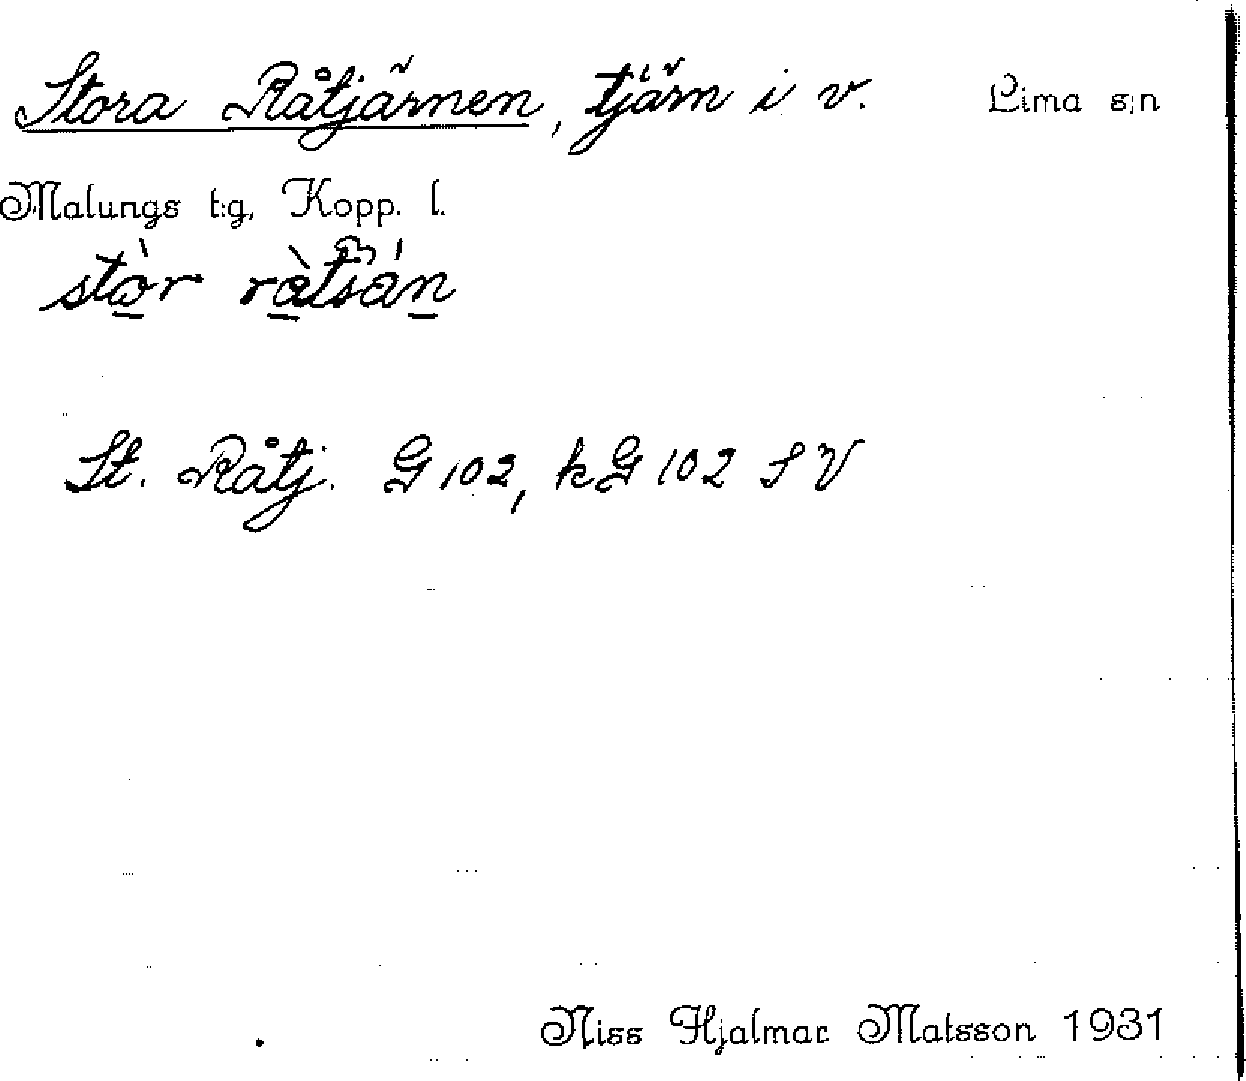 Stora Råtjärnen, tjärn i v. Lima s:n
Malungs t:g, Kopp. l.
St. Råtj. G 102, kG 102 SV
Niss Hjalmar Matsson 1931